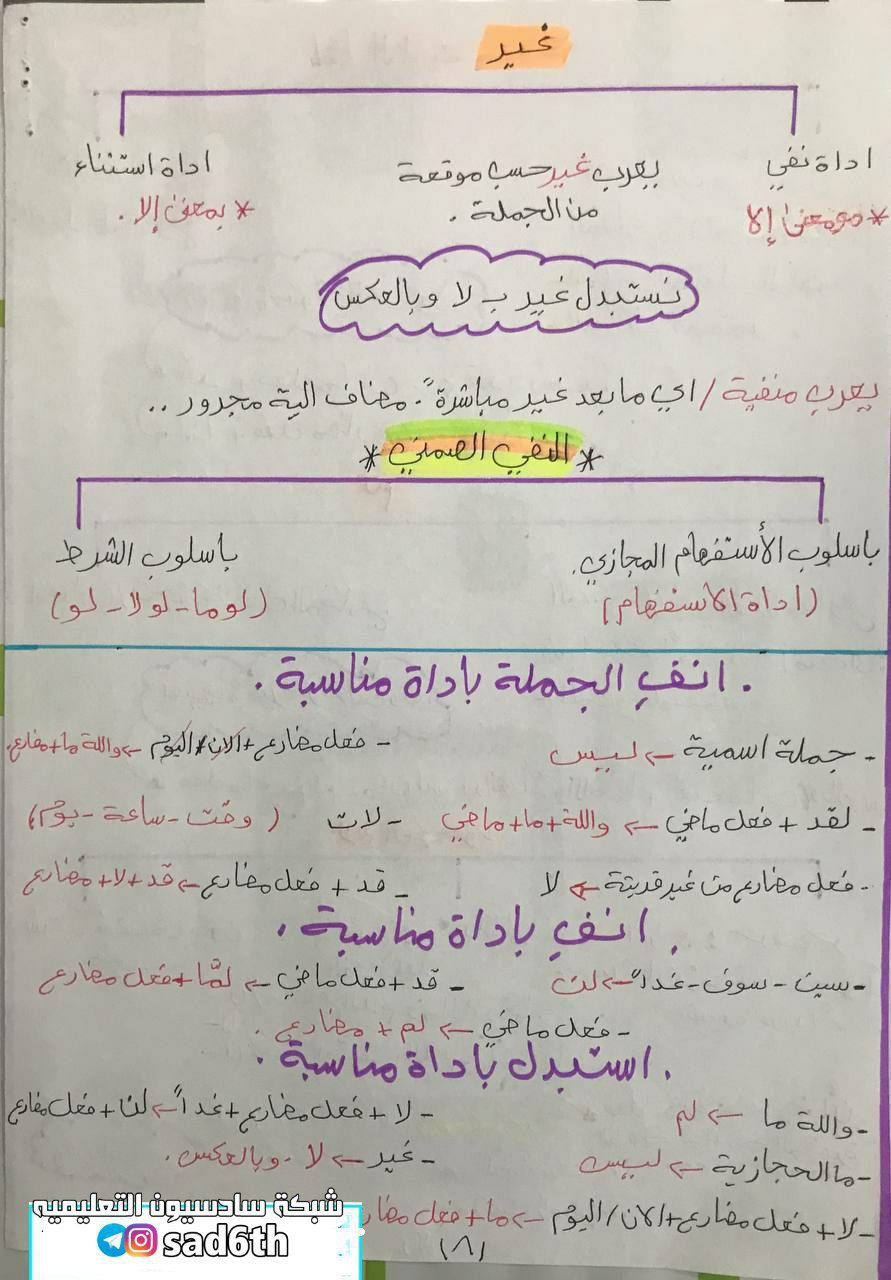 غير
اداة نفي
* مو معنى إلا
يعرب غير حسب موقعة
من الجملة .
اداة استثناء
* بمعنى إلا .
نستبدل غير بـ لا وبالعكس
يعرب منفية / اي ما بعد غير مباشرةً . مضاف الية مجرور ..
* النفي الضمني *
باسلوب الأستفهام المجازي.
(اداة الاستفهام)
باسلوب الشرط
(لوما - لولا - لو)
. انفِ الجملة باداة مناسبة .
- جملة اسمية ← ليس
- فعل مضارع + الان / اليوم ← والله ما + مضارع.
- لقد + فعل ماضي ← والله + ما + ماضي
- لات (وقت - ساعة - يوم)
- فعل مضارع من غير قرينة ← لا
- قد + فعل مضارع ← قد + لا + مضارع
. انفِ باداة مناسبة .
- سين - سوف - غداً ← لن
- قد + فعل ماضي ← لمّا + فعل مضارع
- فعل ماضي ← لم + مضارع .
. استبدل باداة مناسبة .
- والله ما ← لم
- لا + فعل مضارع + غداً ← لن + فعل مضارع
- ما الحجازية ← ليس
- غير ← لا . وبالعكس .
- لا + فعل مضارع + الان / اليوم ← ما + فعل
(٨)
شبكة سادسيون التعليميه
sad6th